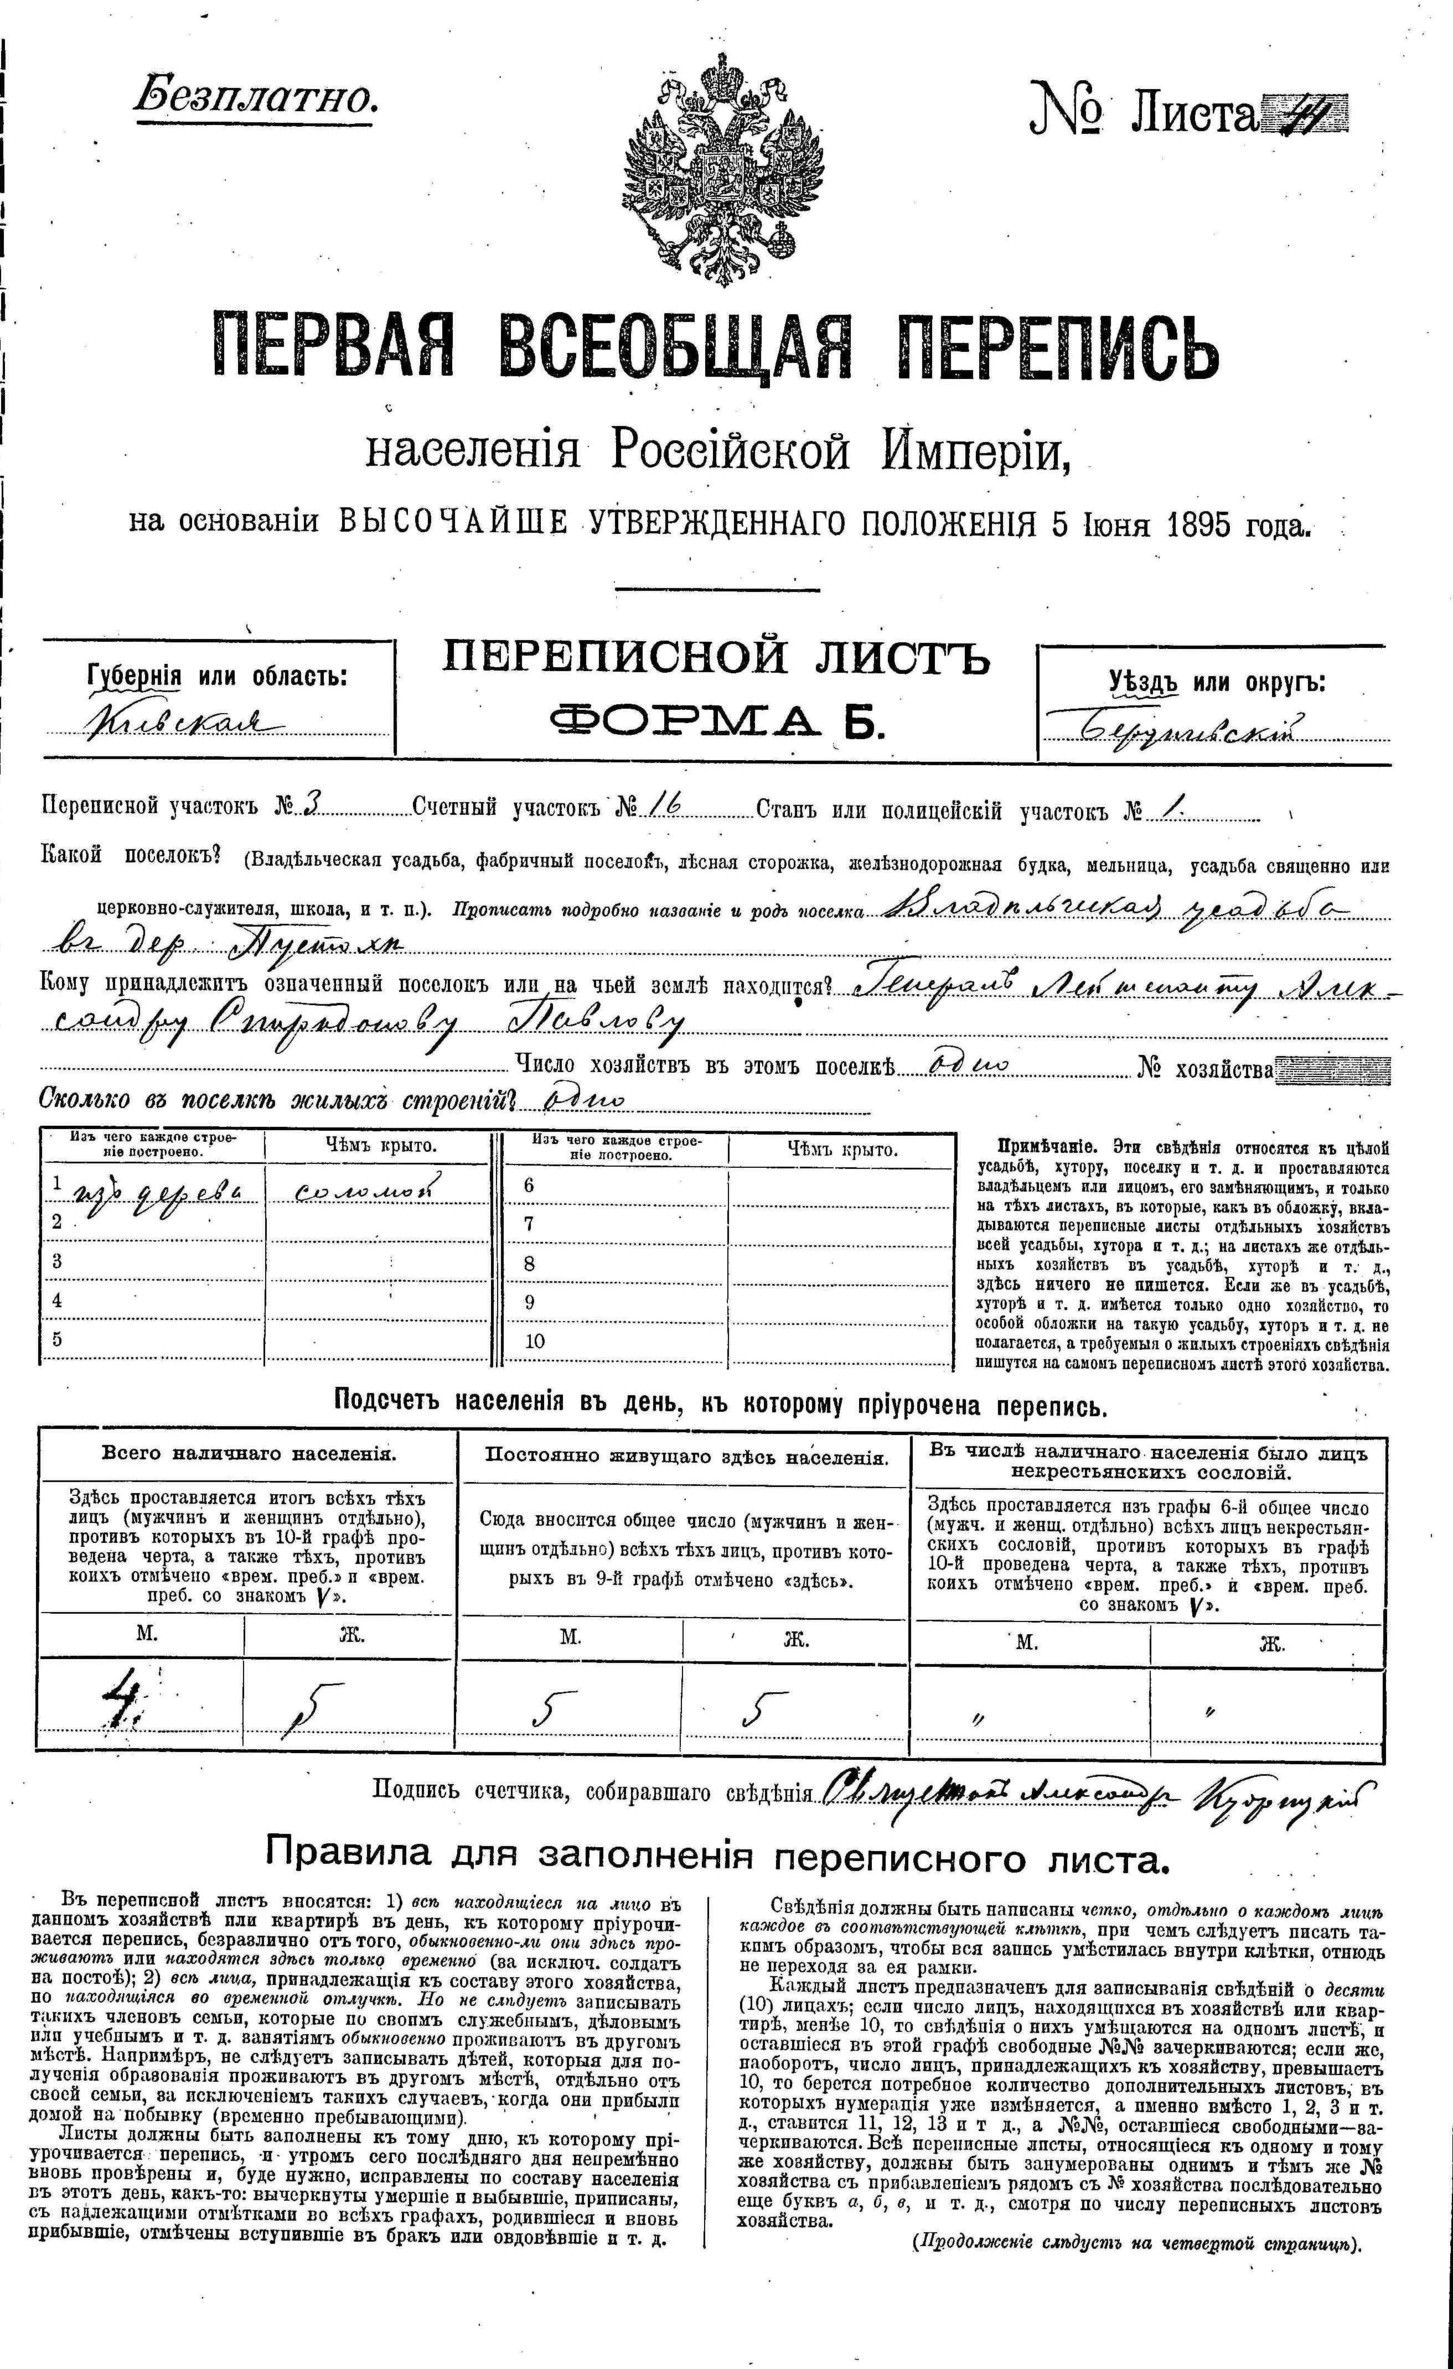 Безплатно.
№ Листа 44
ПЕРВАЯ ВСЕОБЩАЯ ПЕРЕПИСЬ
населенія Россійской Имперіи,
на основаніи ВЫСОЧАЙШЕ УТВЕРЖДЕННАГО ПОЛОЖЕНІЯ 5 Іюня 1895 года.
ПЕРЕПИСНОЙ ЛИСТЪ
ФОРМА Б.
Губернія или область:
Кіевская
Уѣздъ или округъ:
Бердичевскій
Переписной участокъ № 3 Счетный участокъ № 16 Станъ или полицейскій участокъ № 1.
Какой поселокъ? (Владѣльческая усадьба, фабричный поселокъ, лѣсная сторожка, желѣзнодорожная будка, мельница, усадьба священно или
церковно-служителя, школа, и т. п.). Прописать подробно названіе и родъ поселка Владѣльческая усадьба
въ дер. Пустохи
Кому принадлежитъ означенный поселокъ или на чьей землѣ находится? Генералъ Лейтенанту Алек-
сандру Спиридонову Павлову
Число хозяйствъ въ этомъ поселкѣ одно № хозяйства
Сколько въ поселкѣ жилыхъ строеній? одно
Изъ чего каждое строе-
ніе построено.
Чѣмъ крыто.
Изъ чего каждое строе-
ніе построено.
Чѣмъ крыто.
1 изъ дерева соломой 6
2 7
3 8
4 9
5 10
Примѣчаніе. Эти свѣдѣнія относятся къ цѣлой
усадьбѣ, хутору, поселку и т. д. и проставляются
владѣльцемъ или лицомъ, его замѣняющимъ, и только
на тѣхъ листахъ, въ которые, какъ въ обложку, вкла-
дываются переписные листы отдѣльныхъ хозяйствъ
всей усадьбы, хутора и т. д.; на листахъ же отдѣль-
ныхъ хозяйствъ въ усадьбѣ, хуторѣ и т. д.,
здѣсь ничего не пишется. Если же въ усадьбѣ,
хуторѣ и т. д. имѣется только одно хозяйство, то
особой обложки на такую усадьбу, хуторъ и т. д. не
полагается, а требуемыя о жилыхъ строеніяхъ свѣдѣнія
пишутся на самомъ переписномъ листѣ этого хозяйства.
Подсчетъ населенія въ день, къ которому пріурочена перепись.
Всего наличнаго населенія.
Здѣсь проставляется итогъ всѣхъ тѣхъ
лицъ (мужчинъ и женщинъ отдѣльно),
противъ которыхъ въ 10-й графѣ про-
ведена черта, а также тѣхъ, противъ
коихъ отмѣчено «врем. преб.» и «врем.
преб. со знакомъ V».
Постоянно живущаго здѣсь населенія.
Сюда вносится общее число (мужчинъ и жен-
щинъ отдѣльно) всѣхъ тѣхъ лицъ, противъ кото-
рыхъ въ 9-й графѣ отмѣчено «здѣсь».
Въ числѣ наличнаго населенія было лицъ
некрестьянскихъ сословій.
Здѣсь проставляется изъ графы 6-й общее число
(мужч. и женщ. отдѣльно) всѣхъ лицъ некрестьян-
скихъ сословій, противъ которыхъ въ графѣ
10-й проведена черта, а также тѣхъ, противъ
коихъ отмѣчено «врем. преб.» и «врем. преб.
со знакомъ V».
М. Ж. М. Ж. М. Ж.
4 5 5 5 " "
Подпись счетчика, собиравшаго свѣдѣнія Священникъ Александръ
Правила для заполненія переписного листа.
Въ переписной листъ вносятся: 1) всѣ находящіеся на лицо въ
данномъ хозяйствѣ или квартирѣ въ день, къ которому пріурочи-
вается перепись, безразлично отъ того, обыкновенно-ли они здѣсь про-
живаютъ или находятся здѣсь только временно (за исключ. солдатъ
на постоѣ); 2) всѣ лица, принадлежащія къ составу этого хозяйства,
но находящіяся во временной отлучкѣ. Но не слѣдуетъ записывать
такихъ членовъ семьи, которые по своимъ служебнымъ, дѣловымъ
или учебнымъ и т. д. занятіямъ обыкновенно проживаютъ въ другомъ
мѣстѣ. Напримѣръ, не слѣдуетъ записывать дѣтей, которыя для по-
лученія образованія проживаютъ въ другомъ мѣстѣ, отдѣльно отъ
своей семьи, за исключеніемъ такихъ случаевъ, когда они прибыли
домой на побывку (временно пребывающими).
Листы должны быть заполнены къ тому дню, къ которому прі-
урочивается перепись, и утромъ сего послѣдняго дня непремѣнно
вновь провѣрены и, буде нужно, исправлены по составу населенія
въ этотъ день, какъ-то: вычеркнуты умершіе и выбывшіе, приписаны,
съ надлежащими отмѣтками во всѣхъ графахъ, родившіеся и вновь
прибывшіе, отмѣчены вступившіе въ бракъ или овдовѣвшіе и т. д.
Свѣдѣнія должны быть написаны четко, отдѣльно о каждомъ лицѣ
каждое въ соотвѣтствующей клѣткѣ, при чемъ слѣдуетъ писать та-
кимъ образомъ, чтобы вся запись умѣстилась внутри клѣтки, отнюдь
не переходя за ея рамки.
Каждый листъ предназначенъ для записыванія свѣдѣній о десяти
(10) лицахъ; если число лицъ, находящихся въ хозяйствѣ или квар-
тирѣ, менѣе 10, то свѣдѣнія о нихъ умѣщаются на одномъ листѣ, и
оставшіеся въ этой графѣ свободные №№ зачеркиваются; если же,
наоборотъ, число лицъ, принадлежащихъ къ хозяйству, превышаетъ
10, то берется потребное количество дополнительныхъ листовъ, въ
которыхъ нумерація уже измѣняется, а именно вмѣсто 1, 2, 3 и т.
д., ставится 11, 12, 13 и т д., а №№, оставшіеся свободными—за-
черкиваются. Всѣ переписные листы, относящіеся къ одному и тому
же хозяйству, должны быть занумерованы однимъ и тѣмъ же №
хозяйства съ прибавленіемъ рядомъ съ № хозяйства послѣдовательно
еще буквъ а, б, в, и т. д., смотря по числу переписныхъ листовъ
хозяйства.
(Продолженіе слѣдуетъ на четвертой страницѣ).